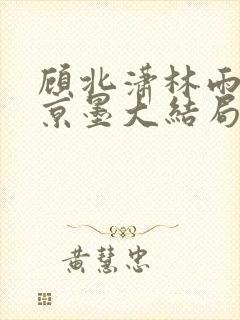 顾北潇林雨
京墨大結局
黃慧忠